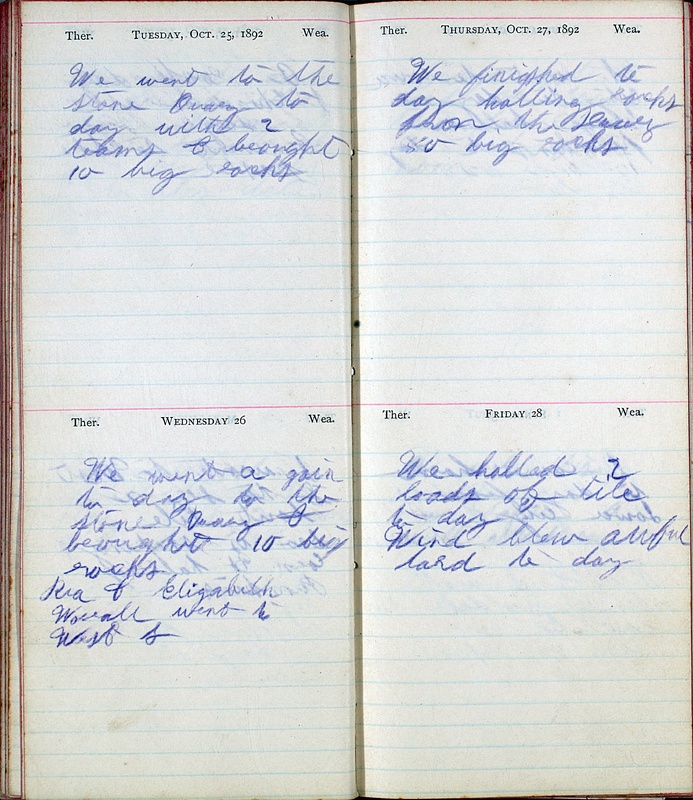 Ther. TUESDAY, OCT. 25, 1892 Wea.
We went to the
stone Quary to
day with 2
teams & brought
10 big rocks
Ther. WEDNESDAY 26 Wea.
We went a gain
to day to the
stone Quary &
brought 10 big
rocks
& Elizabeth
went to
West
Ther. THURSDAY, OCT. 27, 1892 Wea.
We finished to
day halling rocks
from the
50 big rocks
Ther. FRIDAY 28 Wea.
We halled 2
loads of tile
to day
Wind blew awful
hard to day